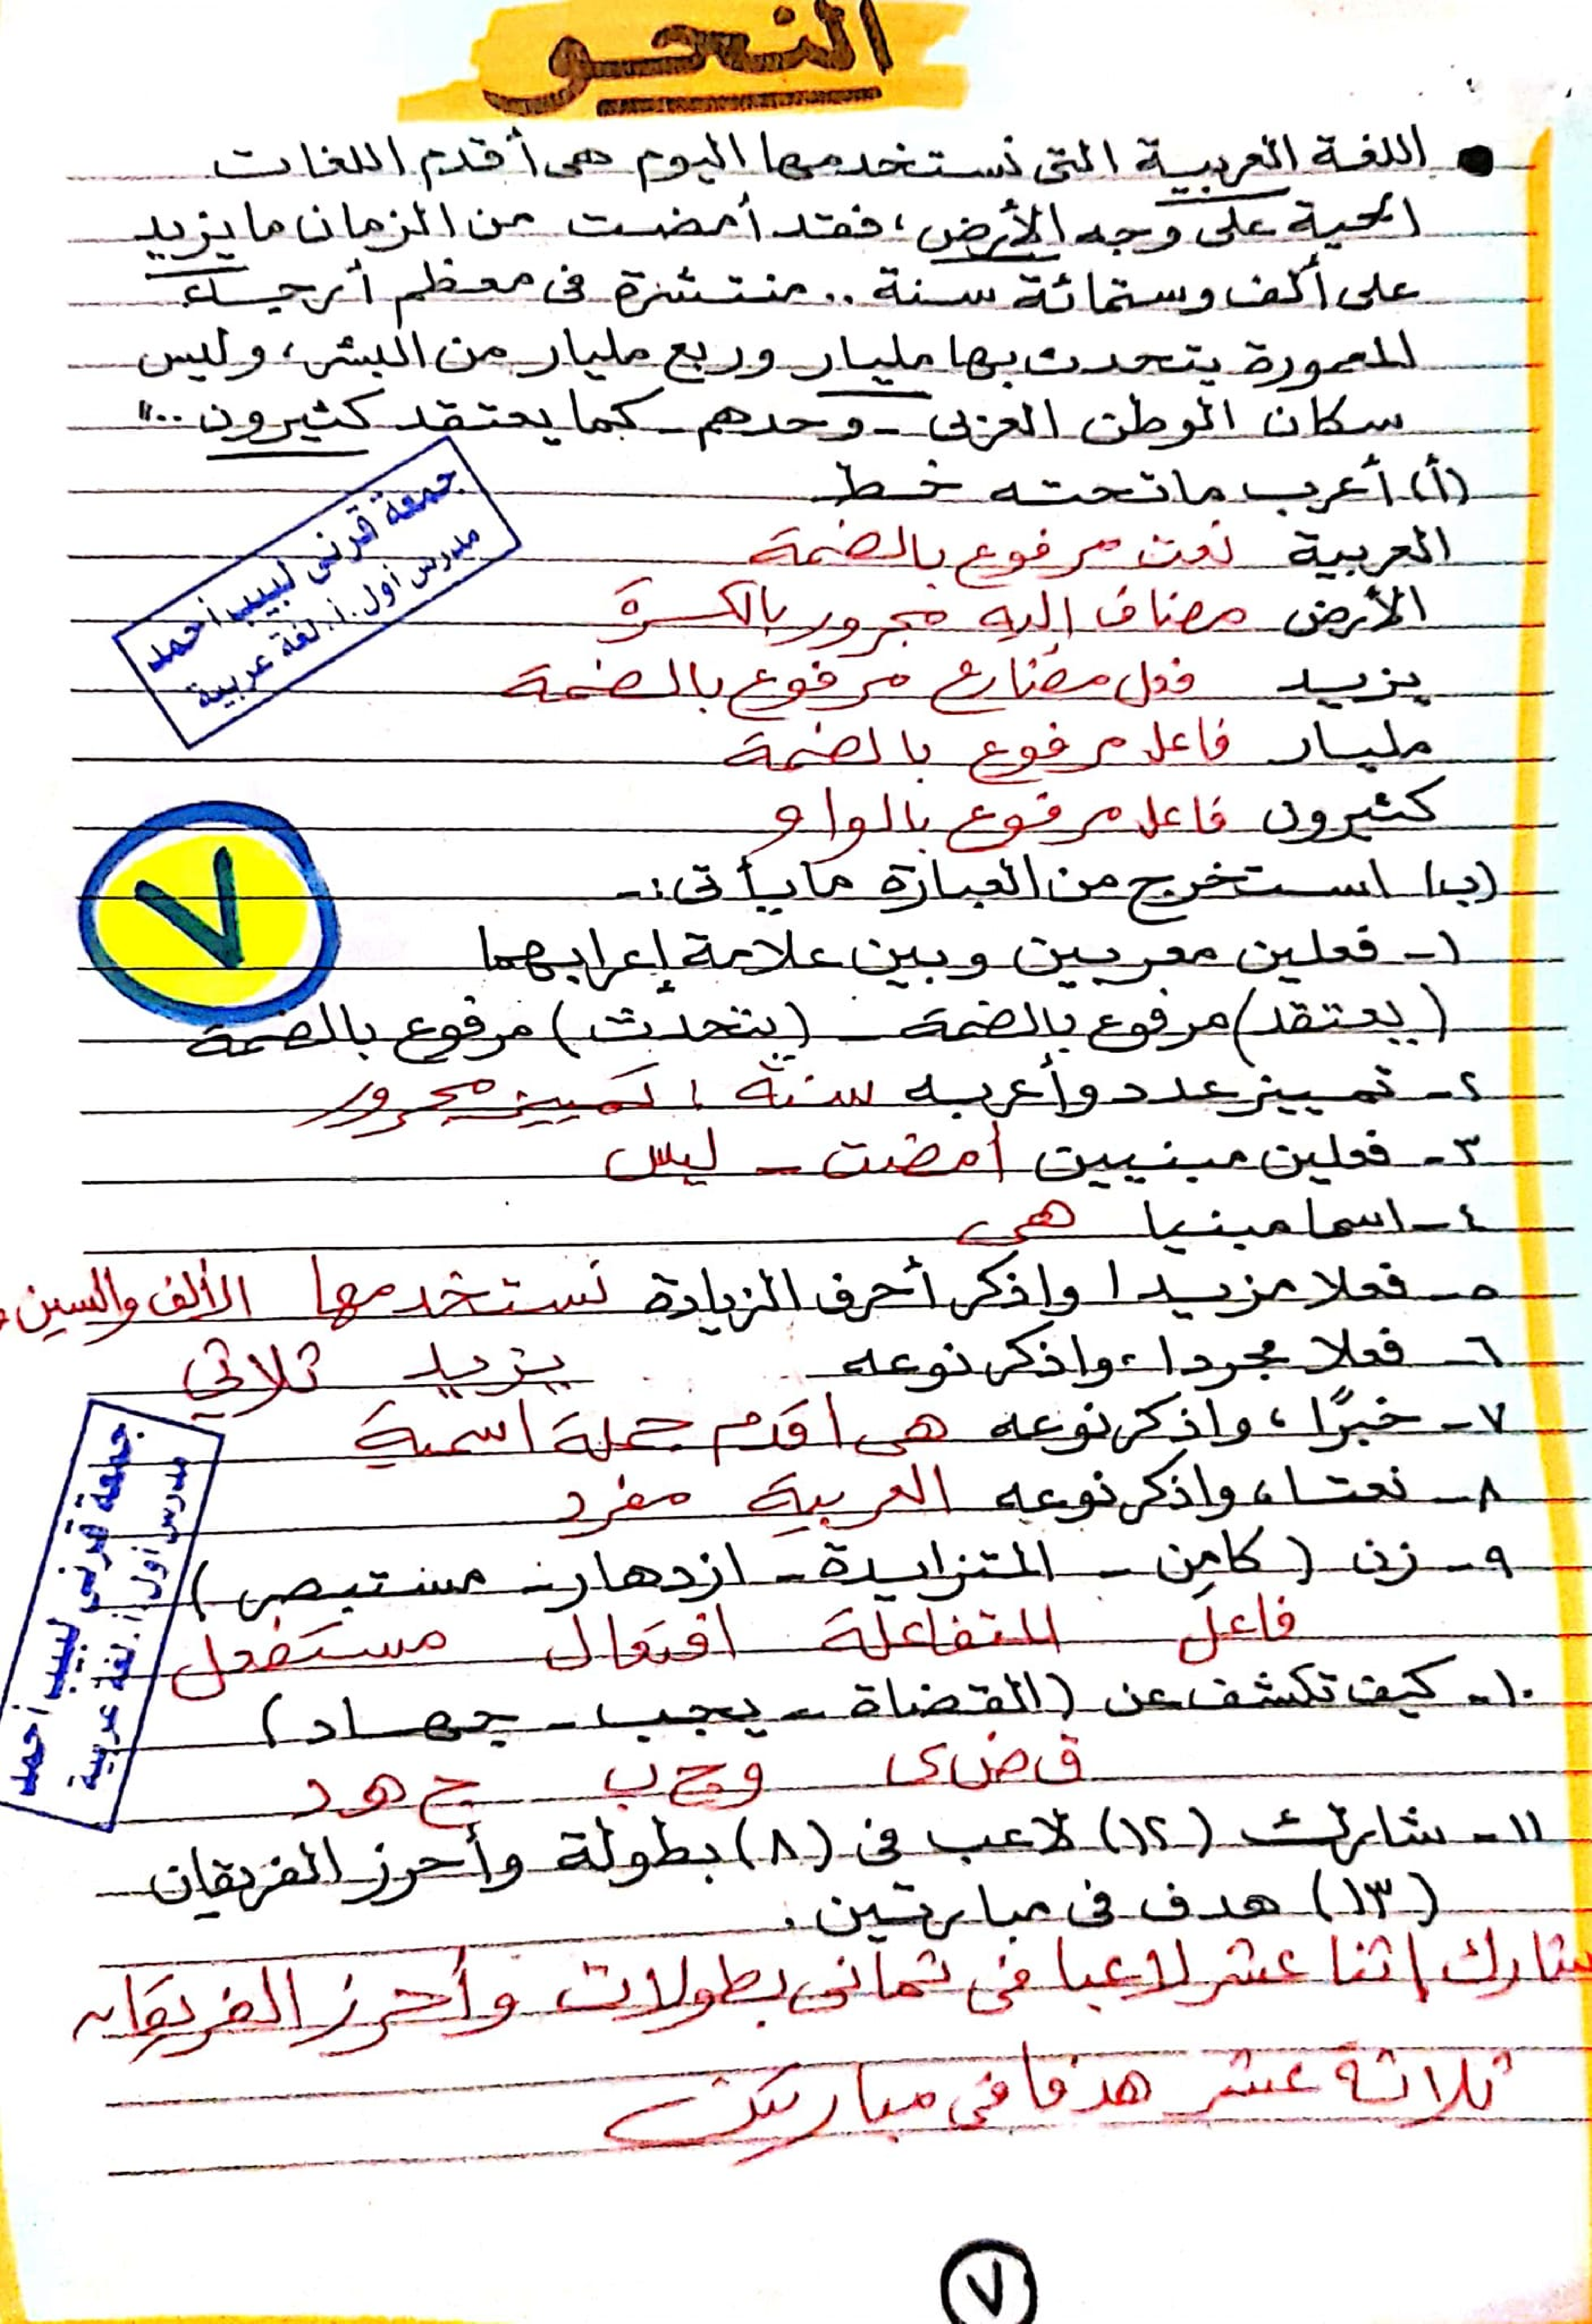 النحو
● اللغة العربية التى نستخدمها اليوم هى أقدم اللغات
الحية على وجه الأرض، فقد أمضت من الزمان ما يزيد
على ألف وستمائة سنة .. منتشرة فى معظم أرجاء
المعمورة يتحدث بها مليار وربع مليار من البشر، وليس
سكان الوطن العربى - وحدهم - كما يعتقد كثيرون .."
(أ) أعرب ما تحته خط
العربية نعت مرفوع بالضمة
الأرض مضاف إليه مجرور بالكسرة
يزيد فعل مضارع مرفوع بالضمة
مليار فاعل مرفوع بالضمة
كثيرون فاعل مرفوع بالواو
جمعة قرنى لبيب أحمد
مدرس أول .أ. لغة عربية
(ب) استخرج من العبارة ما يأتى :-
٧
١- فعلين معربين وبين علامة إعرابهما
(يعتقد) مرفوع بالضمة - (يتحدث) مرفوع بالضمة
٢- تمييز عدد وأعربه سنة : تمييز مجرور
٣- فعلين مبنيين أمضت - ليس
٤- اسما مبنيا هى
٥- فعلا مزيدا واذكر أحرف الزيادة نستخدمها الألف والسين و
٦- فعلا مجردا، واذكر نوعه يزيد ثلاثي
٧- خبرًا، واذكر نوعه هى أقدم جملة اسمية
٨- نعتا، واذكر نوعه العربية مفرد
٩- زن (كامن - المتزايدة - ازدهار - مستبصر)
فاعل المتفاعلة افتعال مستفعل
١٠- كيف تكشف عن (القضاة - يجب - جهاد)
ق ض ى و ج ب ج ه د
جمعة قرنى لبيب أحمد
مدرس أول .أ. لغة عربية
١١- شارك (١٢) لاعب فى (٨) بطولة وأحرز الفريقان
(١٣) هدف فى مبارتين .
شارك إثنا عشر لاعبا فى ثمانى بطولات وأحرز الفريقان
ثلاثة عشر هدفا فى مبارتين
٧